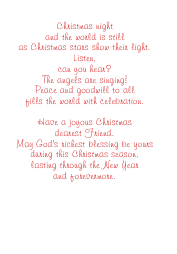 Christmas night
and the world is still
as Christmas stars show their light.
Listen,
can you hear?
The angels are singing!
Peace and goodwill to all
fills the world with celebration.
Have a joyous Christmas
dearest Friend.
May God's richest blessing be yours
during this Christmas season,
lasting through the New Year
and forevermore.